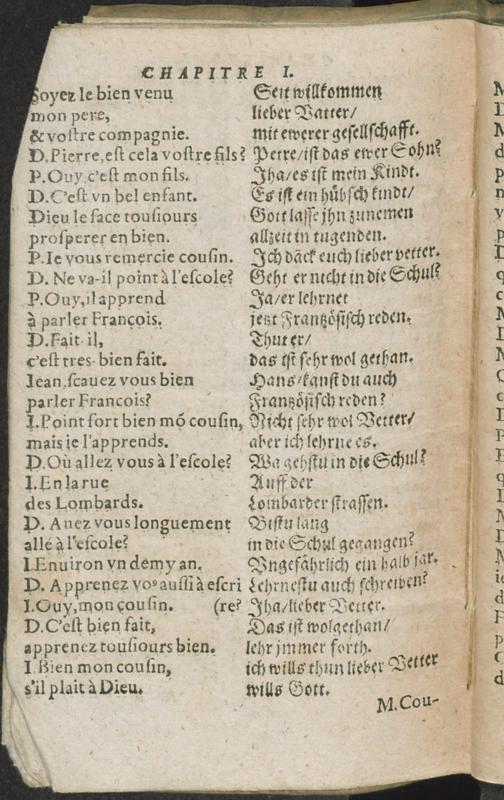 CHAPITRE I.
Soyez le bien venu
mon pere,
& voſtre compagnie.
D. Pierre, est cela voſtre fils?
P. Ouy, c'eſt mon fils.
D. C'eſt vn bel enfant.
Dieu le face touſiours
proſperer en bien.
P. Ie vous remercie couſin.
D. Ne va-il point à l'eſcole?
P. Ouy, il apprend
à parler François.
D. Fait il,
c'eſt tres-bien fait.
Iean, ſcauez vous bien
parler Francois?
I. Point fort bien mō couſin,
mais ie l'apprends.
D. Où allez vous à l'eſcole?
I. En la rue
des Lombards.
D. Auez vous longuement
allé à l'eſcole?
I. Enuiron vn demy an.
D. Apprenez voꝰ auſſi à eſcri
I. Ouy, mon couſin. (re?
D. C'eſt bien fait,
apprenez touſiours bien.
I. Bien mon couſin,
s'il plait à Dieu.
Seit willkommen
lieber Vatter/
mit ewerer geſellſchafft.
Petre/iſt das ewer Sohn?
Jha/es iſt mein Kindt.
Es iſt ein hübſch kindt/
Gott laſſe jhn zunemen
allzeit in tugenden.
Jch däck euch lieber vetter.
Geht er nicht in die Schul?
Ja/er lehrnet
jetzt Frantzöſiſch reden.
Thut er/
das iſt ſehr wol gethan.
Hans/kanſt du auch
Frantzöſiſch reden?
Nicht ſehr wol Vetter/
aber ich lehrne es.
Wa gehſtu in die Schul?
Auff der
Lombarder ſtraſſen.
Biſtu lang
in die Schul gegangen?
Vngefährlich ein halb jar.
Lehrneſtu auch ſchreiben?
Jha/lieber Vetter.
Das iſt wolgethan/
lehr jmmer forth.
ich wills thun lieber Vetter
wills Gott.
M. Cou-